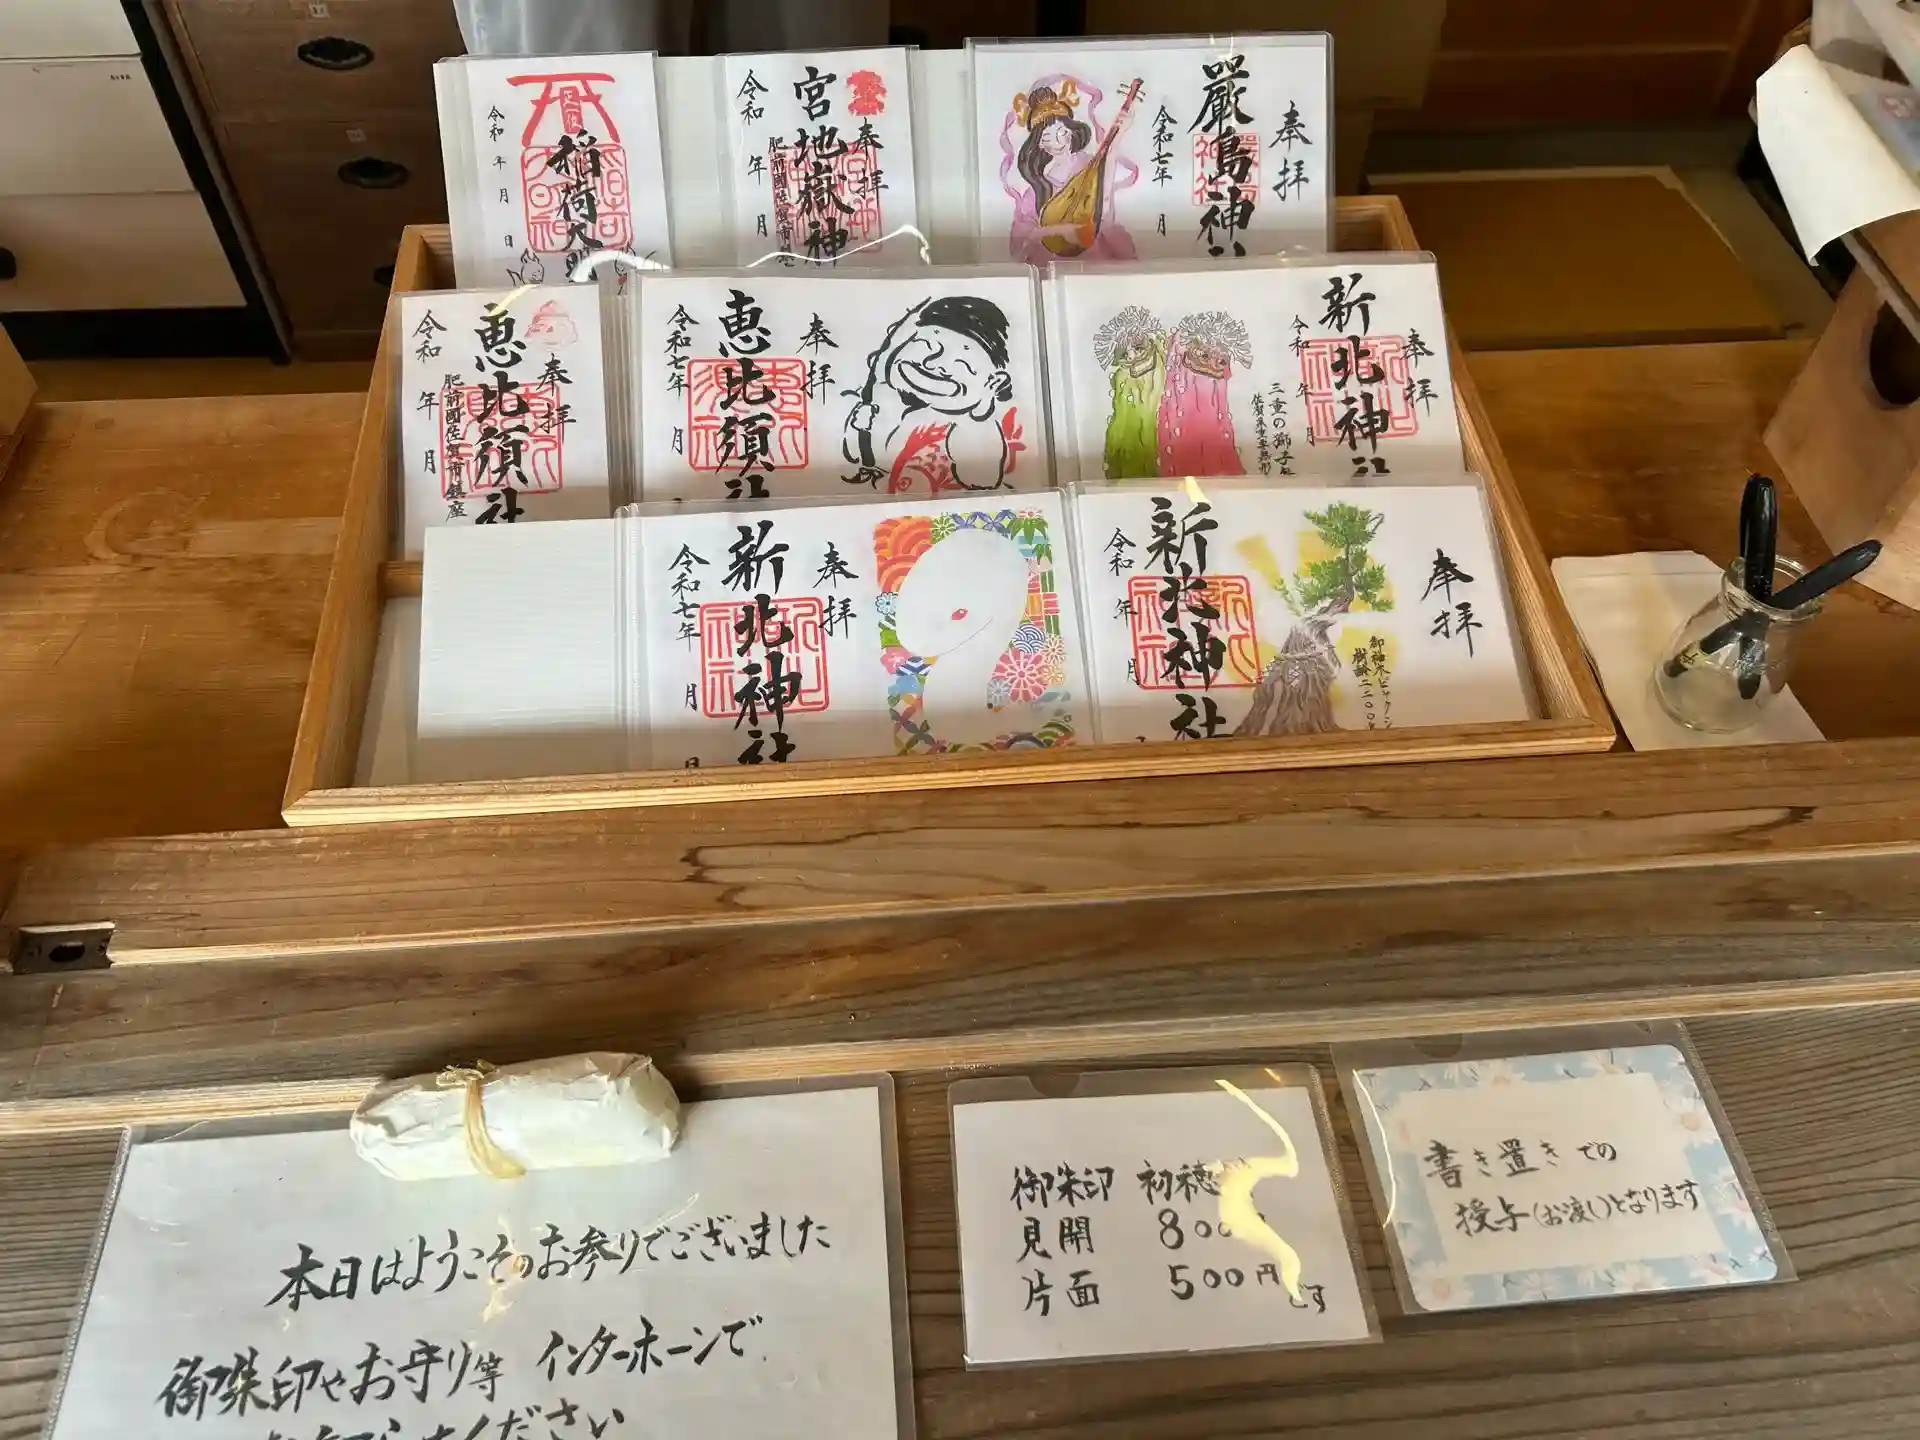 令和 年 月 日
稲荷大明
奉拝
宮地嶽神
肥前國佐賀市鎮座
令和 年 月
奉拝
厳島神社
令和七年 月
奉拝
恵比須社
肥前國佐賀市鎮座
令和 年 月
奉拝
恵比須社
令和七年 月
奉拝
新北神社
令和 年 月
三重の獅子
奉拝
新北神社
令和七年 月 日
奉拝
御神木ビャクシン
樹齢二二〇〇年
新北神社
令和 年 月
本日はようこそのお参りでございました
御朱印やお守り等 インターホーンで
ください
御朱印 初穂
見開 800
片面 500円
です
書き置きでの
授与(お渡し)となります